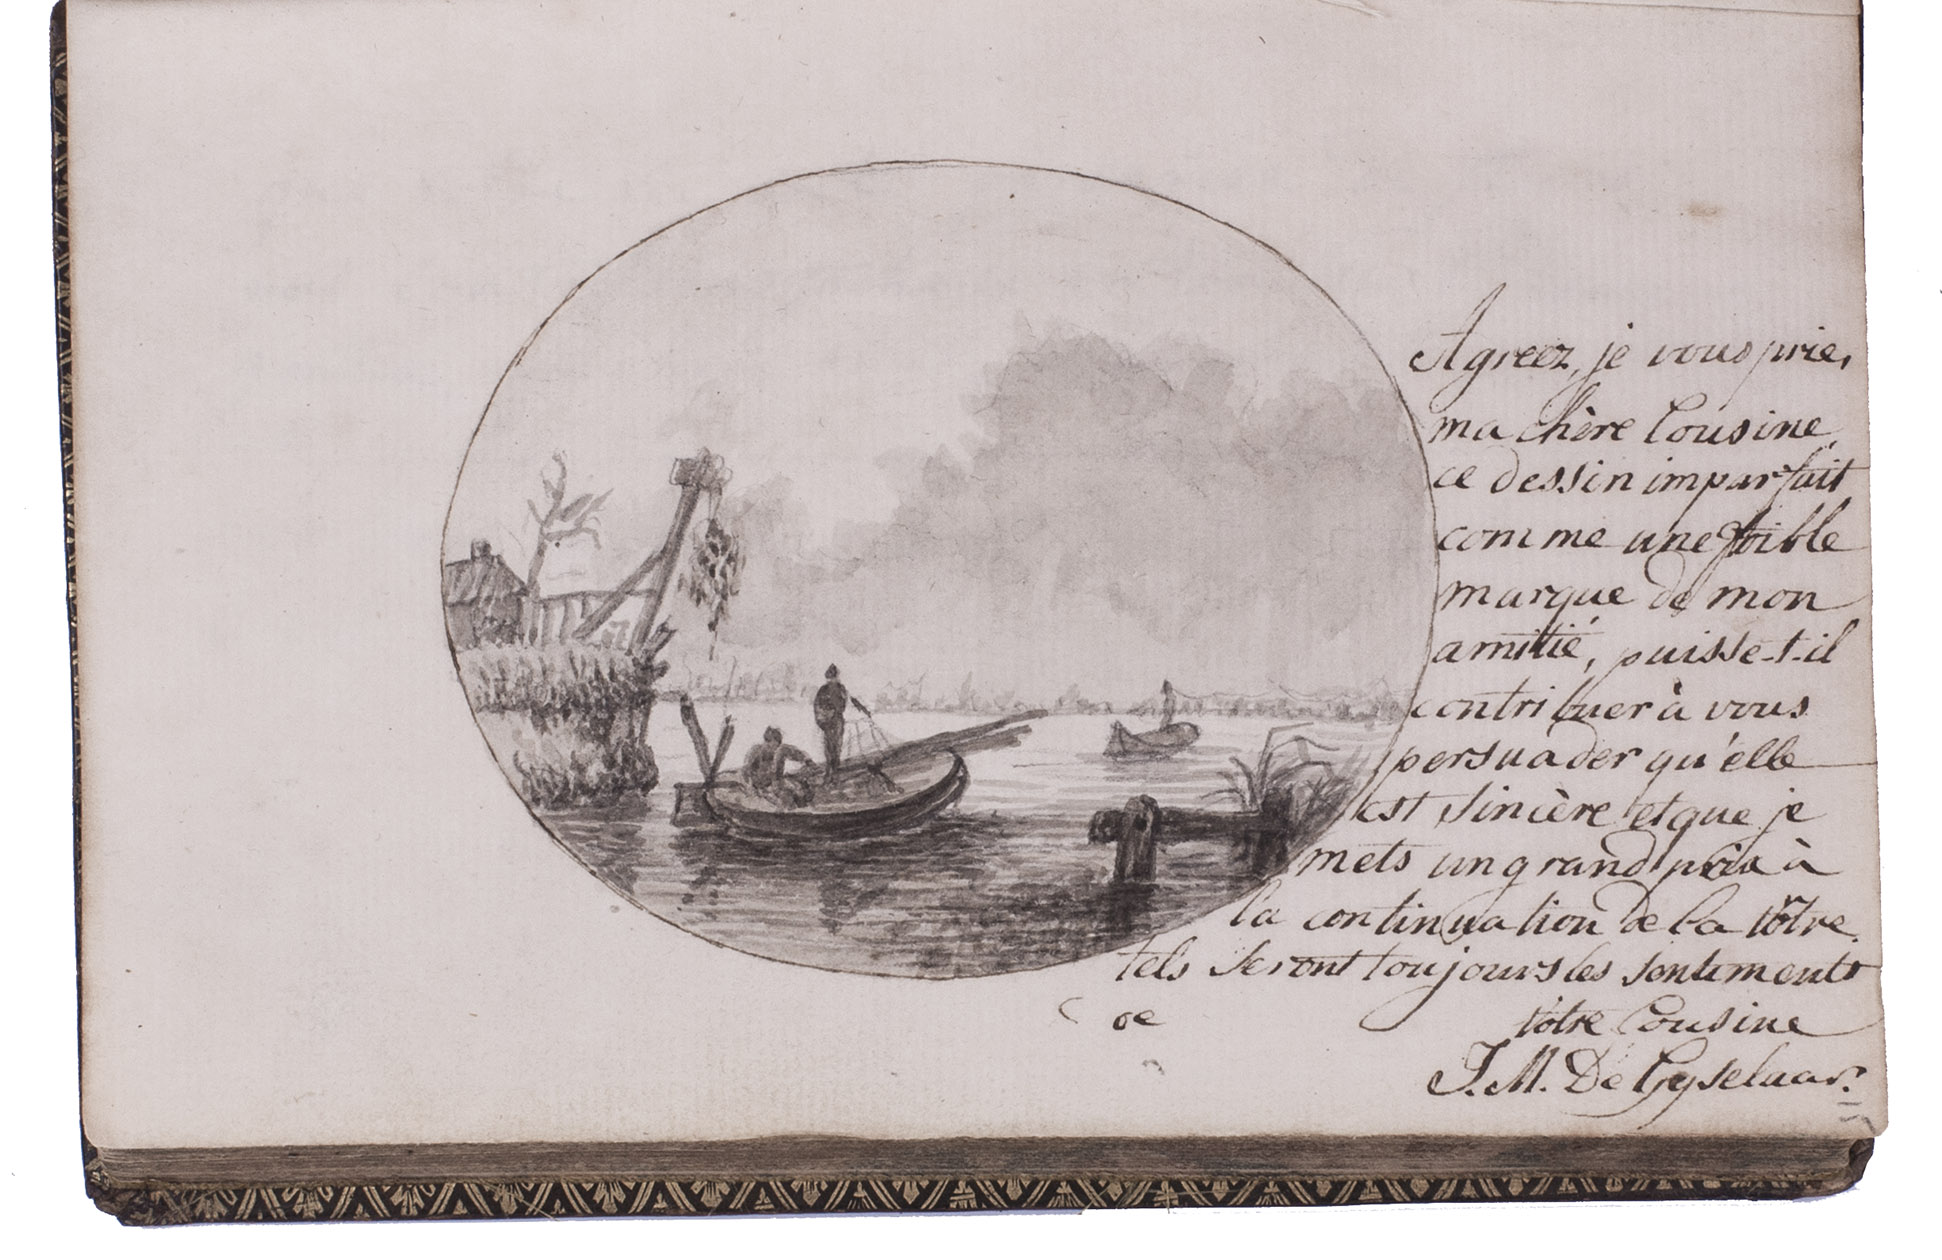 Agreez, je vous prie,
ma chère Cousine,
ce dessin imparfait
comme une foible
marque de mon
amitié, puisse-t-il
contribuer à vous
persuader qu'elle
est sincère et que je
mets un grand prix à
la continuation de la vôtre.
tels seront toujours les sentiments
de vôtre Cousine
J. M. De Gyselaar.